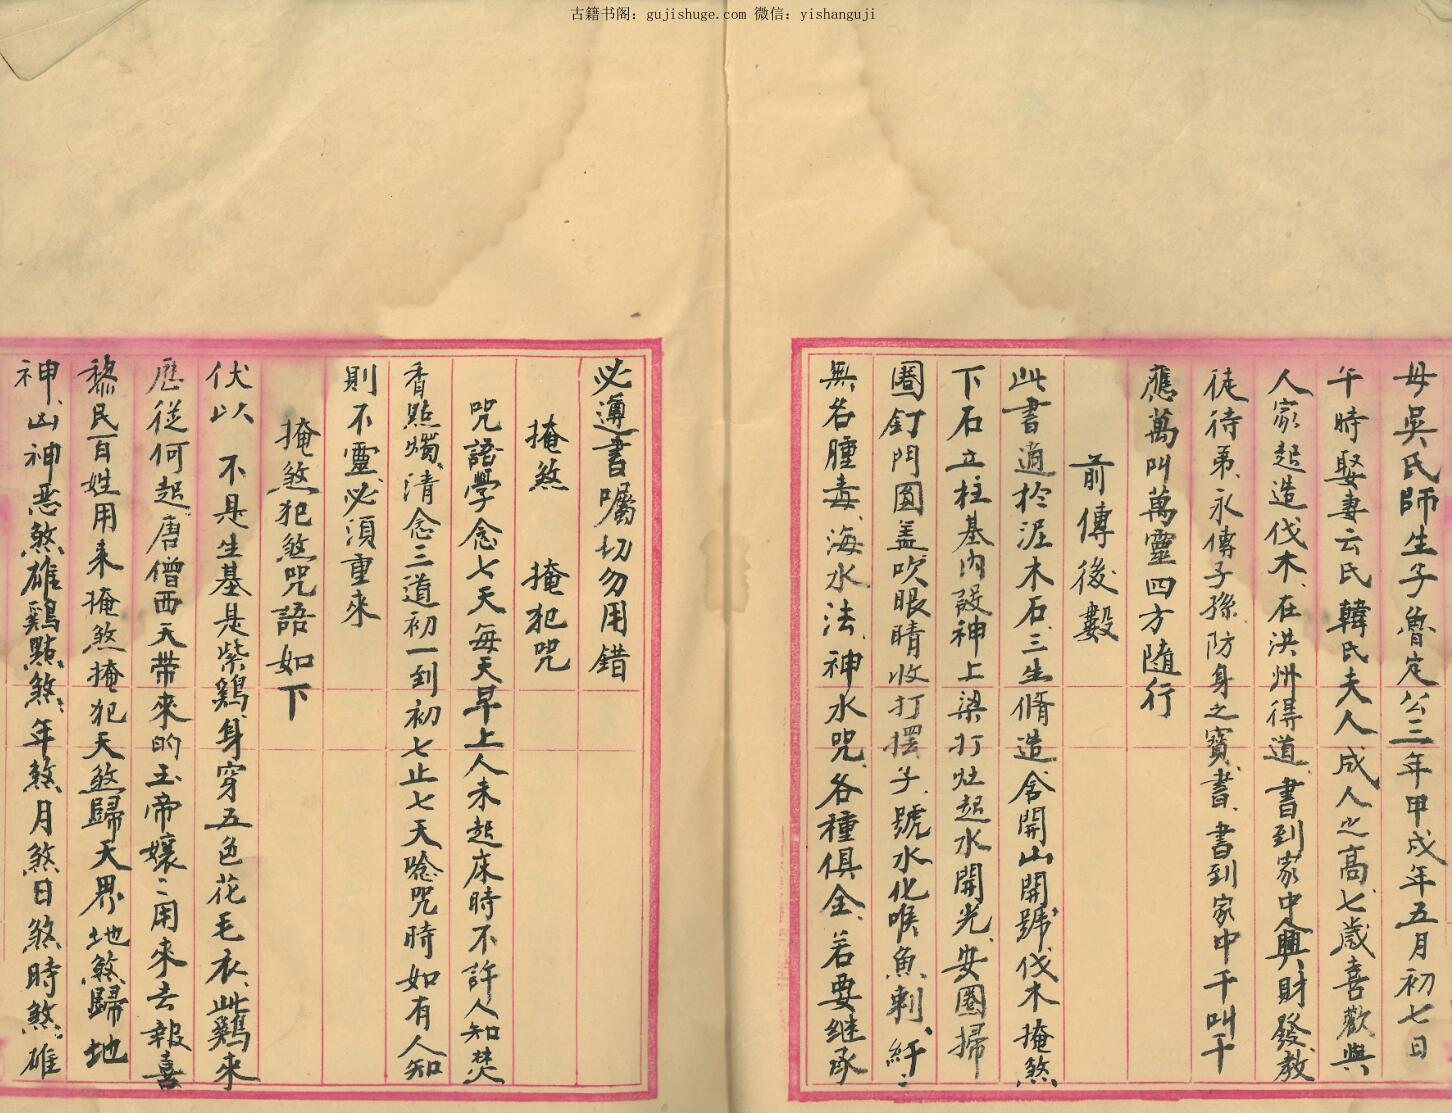 古籍书阁：gujishuge.com 微信：yishanguji
母吳氏師生子魯定公三年甲戌年五月初七日
午時娶妻云氏韓氏夫人成人之高七歲喜歡與
人家起造伐木、在洪州得道、書到家中人興財發教
徒待弟、永傳子孫防身之寶書、書到家中千叫千
應萬叫萬靈四方隨行
前傳後斅
此書適於泥木石、三生脩造舍開山開號、伐木掩煞
下石立柱基內設神上梁打灶起水開光、安圈掃
圈釘門圓盖吹眼睛收打擺子、號水化喉魚剌、紆、
無名腫毒、海水、法、神水咒、各種俱全、若要继承
必遵書囑切勿用錯
掩煞 掩犯咒
咒語學念七天每天早上人未起床時不許人知焚
香點燭、清念三道初一到初七止七天唸咒時如有人知
則不靈必須重來
掩煞犯煞咒語如下
伏以 不是生基是紫鷄、身穿五色花毛衣、此鷄來
應從何起、唐僧西天带來的玉帝孃々用來去報喜
黎民百姓用来掩煞掩犯天煞歸天界地煞歸地
神、山神恶煞雄鷄點煞、年煞月煞日煞時煞、雄